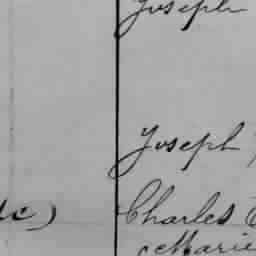 Joseph
Joseph
Charles
Marie